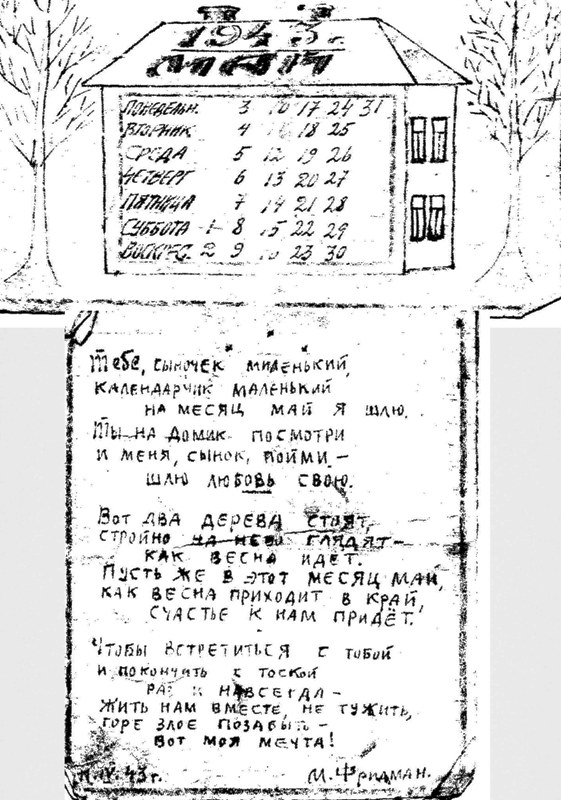 1943г.
МАЙ
ПОНЕДЕЛЬН. 3 10 17 24 31
ВТОРНИК 4 18 25
СРЕДА 5 12 19 26
ЧЕТВЕРГ 6 13 20 27
ПЯТНИЦА 7 14 21 28
СУББОТА 1 8 15 22 29
ВОСКРЕС. 2 9 23 30
Тебе, сыночек миленький,
календарчик маленький
на месяц май я шлю.
Ты на домик посмотри
и меня, сынок, пойми –
шлю любовь свою.
Вот два дерева стоят,
стройно на небо глядят –
как весна идет.
Пусть же в этот месяц май,
как весна приходит в край,
счастье к нам придёт.
Чтобы встретиться с тобой
и покончить с тоской
раз и навсегда –
жить нам вместе, не тужить,
горе злое позабыть –
вот моя мечта!
IV. 43 г.
М. Фридман.